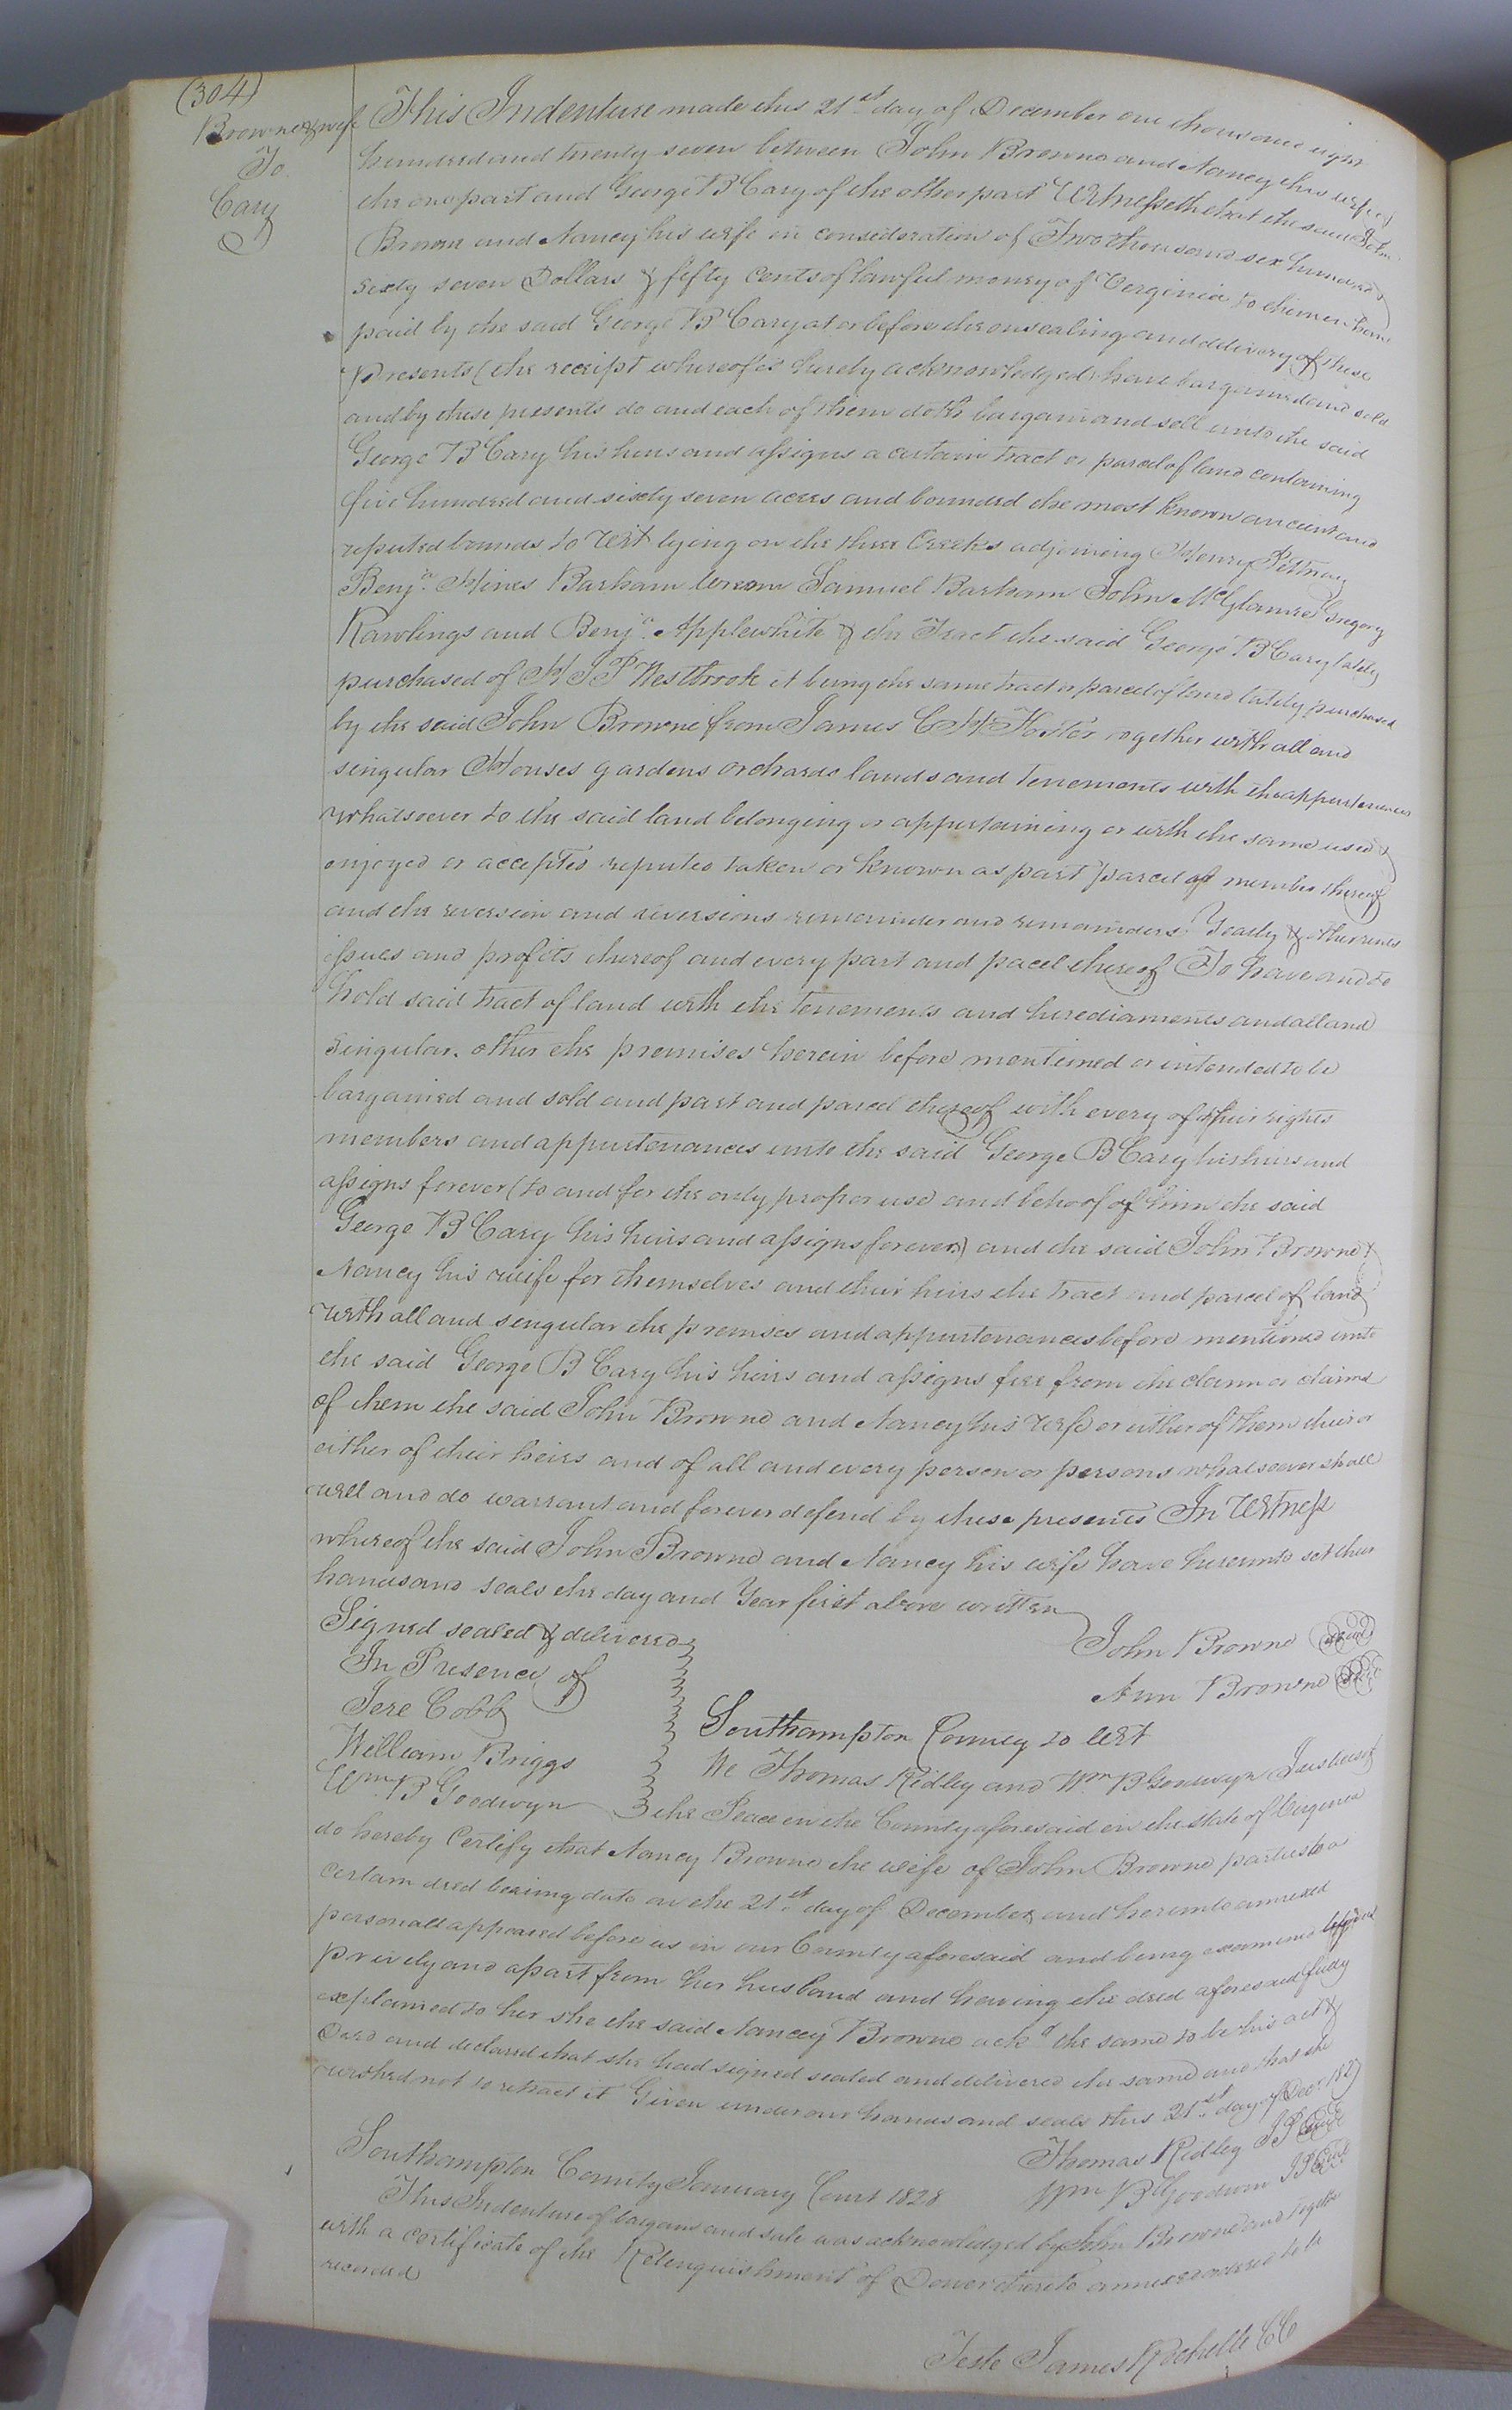 (304)
Browne & wife
To
Cary
This Indenture made this 21st day of December one thousand eight
hundred and twenty seven between John Browne and Nancy his wife of
the one part and George B Cary of the other part Witnesseth that the said John
Browne and Nancy his wife in consideration of Two thousand six hundred &
sixty seven Dollars & fifty cents of lawful money of Virginia to them in hand
paid by the said George B Cary at or before the ensealing and delivery of these
Presents (the receipt whereof is hereby acknowledged) have bargained and sold
and by these presents do and each of them doth bargain and sell unto the said
George B Cary his heirs and assigns a certain tract or parcel of land containing
five hundred and sixty seven acres and bounded the most known ancient and
reputed bounds to wit lying on the three Creeks adjoining Henry Pettway
Benjn. Hines Barham Samuel Barham John McGlamre Gregory
Rawlings and Benjn. Applewhite & the Tract the said George B Cary lately
purchased of H J P Westbrook it being the same tract or parcel of land lately purchased
by the said John Browne from James C H Foster together with all and
singular Houses gardens orchards lands and tenements with the appurtenances
whatsoever to the said land belonging or appurtaining or with the same used &
enjoyed or accepted reputed taken or known as part parcel of member thereof
and the reversion and reversions remainder and remainders Yearly & other rents
issues and profits thereof and every part and pacel thereof To have and to
hold said tract of land with the tenements and herediaments and all and
singular other the premises herein before mentioned or intended to be
bargained and sold and part and parcel thereof with every of their rights
members and appurtenances unto the said George B Cary his heirs and
assigns forever (to and for the only proper use and behoof of him the said
George B Cary his heirs and assigns forever) and the said John Browne &
Nancy his wife for themselves and their heirs the tract and parcel of land
with all and singular the premises and appurtenances before mentioned unto
the said George B Cary his heirs and assigns free from the claim or claims
of them the said John Browne and Nancy his wife or either of them their or
either of their heirs and of all and every person or persons whatsoever shall
will and do warrant and forever defend by these presents In Witness
whereof the said John Browne and Nancy his wife have hereunto set their
hands and seals the day and Year first above written
Signed sealed & delivered
In Presence of
Jere Cobb
William Briggs
Wm. B Goodwyn
John Browne seal
Ann Browne seal
Southampton County to wit
We Thomas Ridley and Wm B Goodwyn Justices of
the Peace in the County aforesaid in the state of Virginia
do hereby Certify that Nancy Browne the wife of John Browne parties to a
certain deed bearing date on the 21st day of December and hereunto annexed
personall appeared before us in our County aforesaid and being examined by us
privily and apart from her husband and having the deed aforesaid fully
explained to her she the said Nancy Browne ackd the same to be his act &
Deed and declared that she had signed sealed and delivered the same and that she
wished not to retract it Given under our hands and seals this 21st day of Decr 1827
Thomas Ridley JP seal
Wm B Goodwin JP seal
Southampton County January Court 1828
This Indenture of bargain and sale was acknowledged by John Browne and together
with a certificate of the Relinquishment of Dower thereto annexed ordered to be
recorded
Teste James Rochelle CC